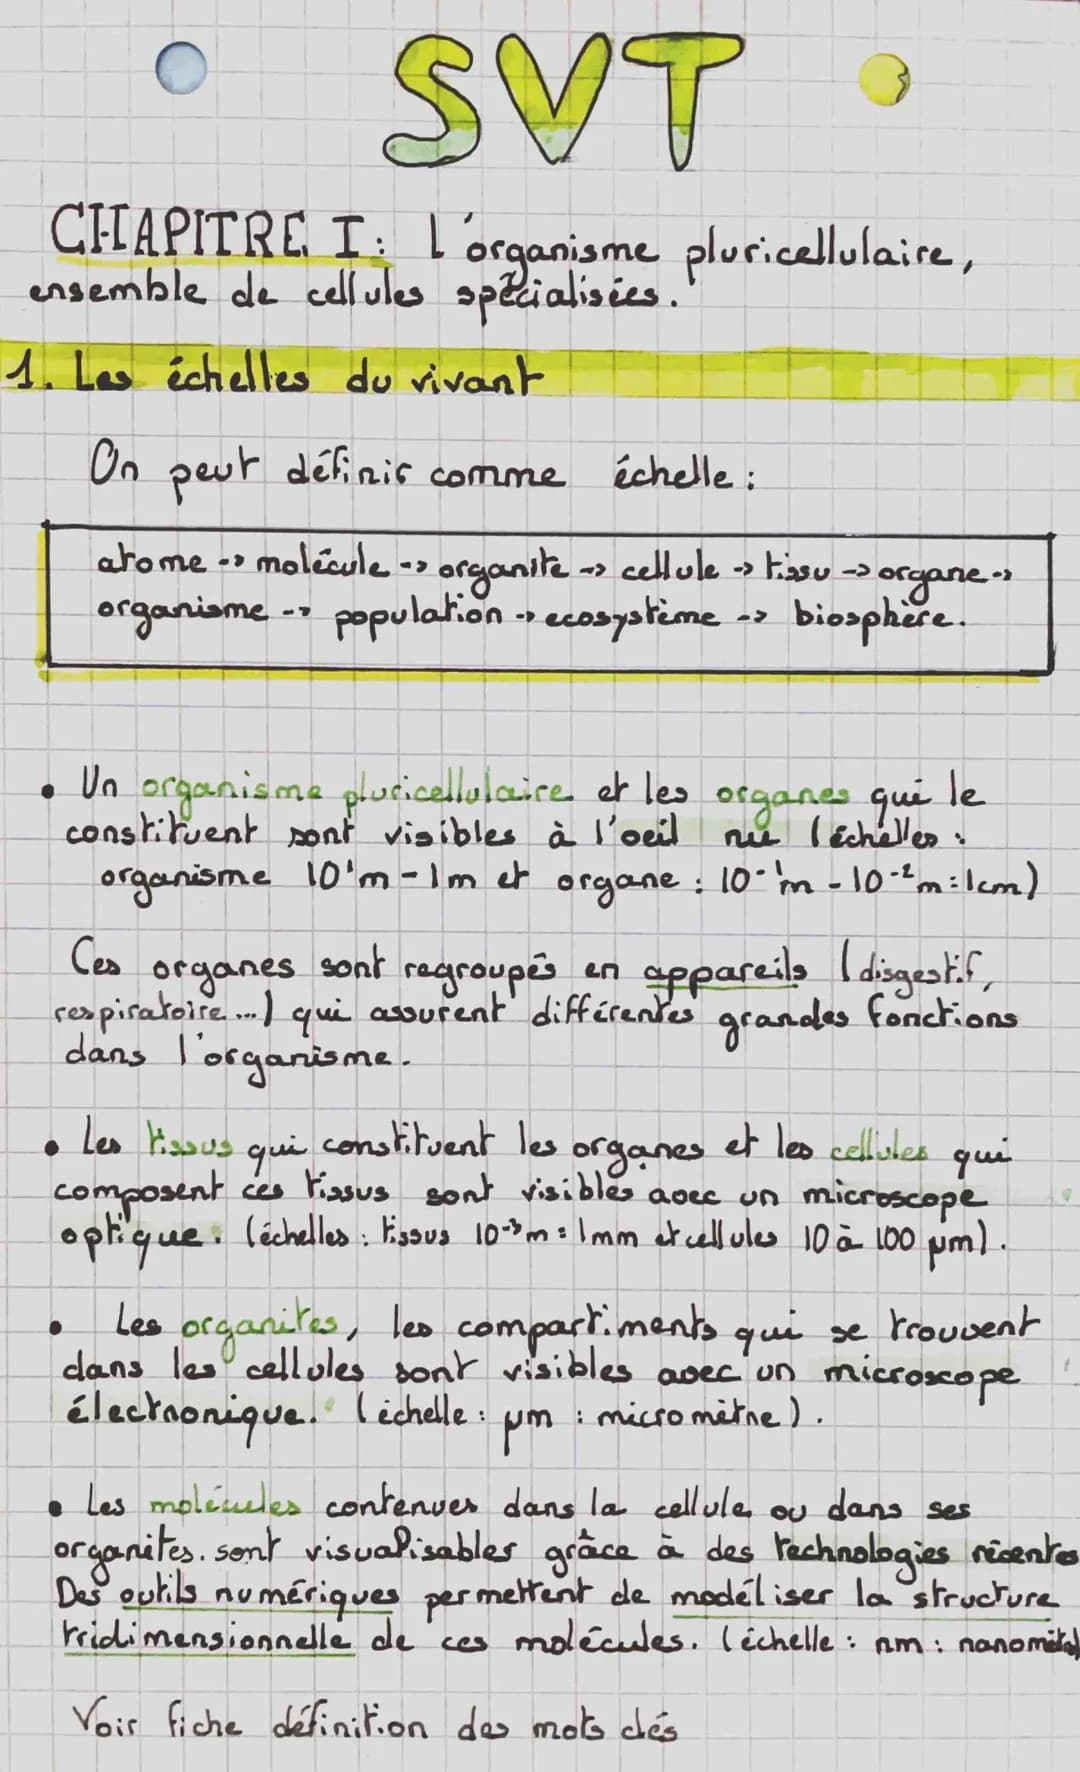 SVT
CHAPITRE I: l'organisme pluricellulaire,
ensemble de cellules spécialisées.
1. Les échelles du vivant
On peut définir comme échelle :
atome -> molécule -> organite -> cellule -> tissu -> organe ->
organisme -> population -> ecosystème -> biosphère.
• Un organisme pluricellulaire et les organes qui le
constituent sont visibles à l'oeil nu (échelles :
organisme 10¹m - 1m et organe : 10-¹m - 10-²m = 1cm)
Ces organes sont regroupés en appareils (disgestif,
respiratoire ...) qui assurent différentes grandes fonctions
dans l'organisme.
• Les tissus qui constituent les organes et les cellules qui
composent ces tissus sont visibles avec un microscope
optique. (échelles : tissus 10-³m = 1mm et cellules 10 à 100 µm).
• Les organites, les compartiments qui se trouvent
dans les cellules sont visibles avec un microscope
électronique. (échelle : µm : micromètre).
• Les molécules contenues dans la cellule ou dans ses
organites. sont visualisables grâce à des technologies récentes
Des outils numériques permettent de modéliser la structure
tridimensionnelle de ces molécules. (échelle : nm : nanomètre)
Voir fiche définition des mots clés